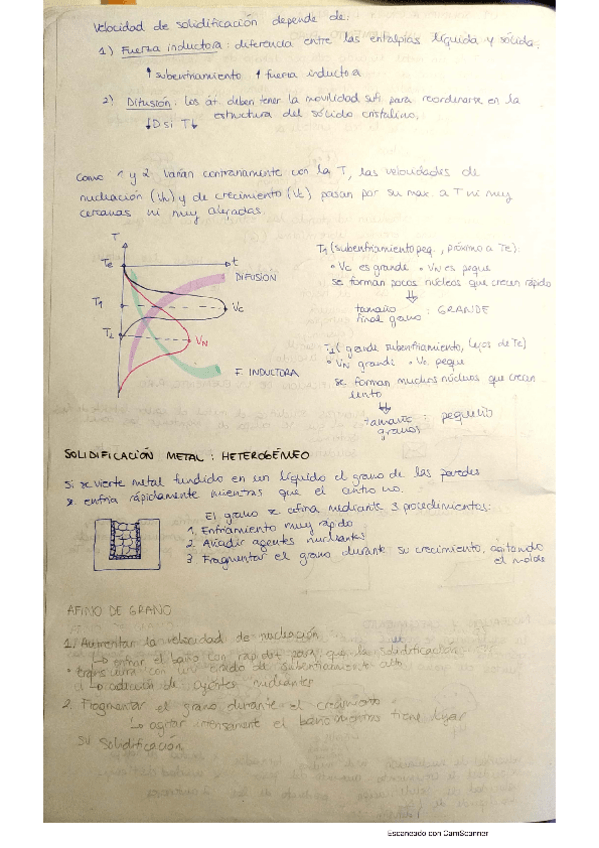 Velocidad de solidificación depende de:
1) Fuerza inductora: diferencia entre las entalpías líquida y sólida.
↑ subenfriamiento ↑ fuerza inductora
2) Difusión: los át. deben tener la movilidad suf. para reordenarse en la
estructura del sólido cristalino.
↓D si T↓
Como 1 y 2 varían contrariamente con la T, las velocidades de
nucleación (VN) y de crecimiento (Vc) pasan por su max. a T ni muy
cercanas ni muy alejadas.
T
Te
t
DIFUSIÓN
T1
Vc
T2
VN
F. INDUCTORA
T1 (subenfriamiento peq., próximo a Te):
• Vc es grande • VN es peque
se forman pocos núcleos que crecen rápido
tamaño final grano : GRANDE
T2 (grande subenfriamiento, lejos de Te)
• VN grande • Vc peque
se forman muchos núcleos que crecen
lento
tamaño granos : pequeño
SOLIDIFICACIÓN METAL : HETEROGÉNEO
Si se vierte metal fundido en un líquido el grano de las paredes
se enfría rápidamente mientras que el no.
El grano se afina mediante 3 procedimientos:
1. Enfriamiento muy rápido
2. Añadir agentes nucleantes
3 Fragmentar el grano durante su crecimiento, agitando
el molde
AFINO DE GRANO
1. Aumentar la velocidad de nucleación
↳ enfriar el baño con rapidez para que la solidificación
ocurra con un grado de subenfriamiento alto
↳ adición de agentes nucleantes
2. Fragmentar el grano durante el crecimiento
↳ agitar intensamente el baño mientras tiene lugar
su solidificación
Escaneado con CamScanner